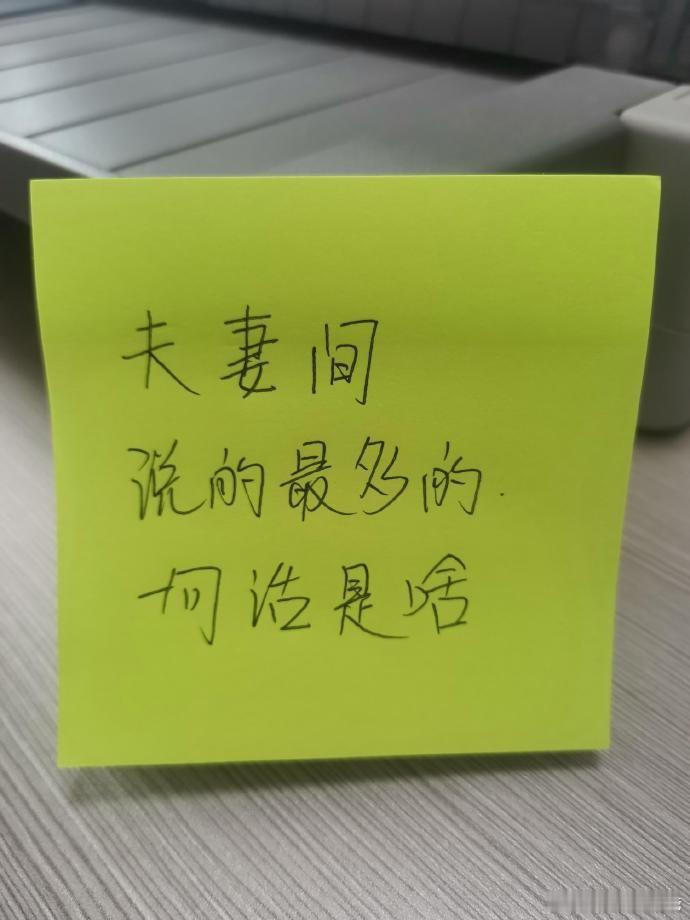 夫妻间
说的最多的
一句话是啥